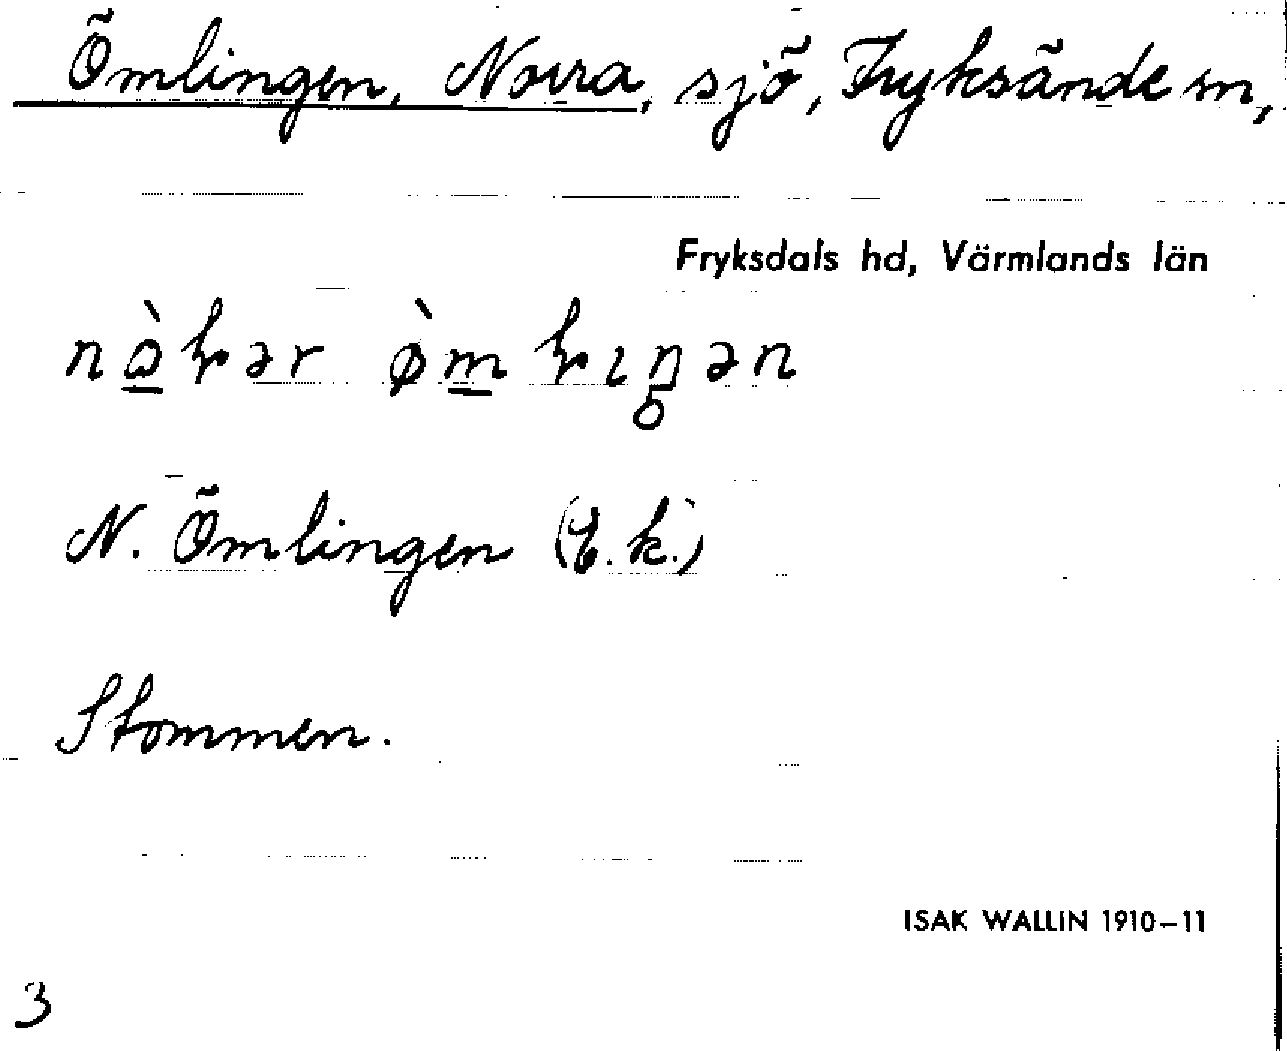 Ömlingen, Norra, sjö, Fryksände sn,
Fryksdals hd, Värmlands län
N. Ömlingen (E.k.)
Stommen.
ISAK WALLIN 1910–11
3